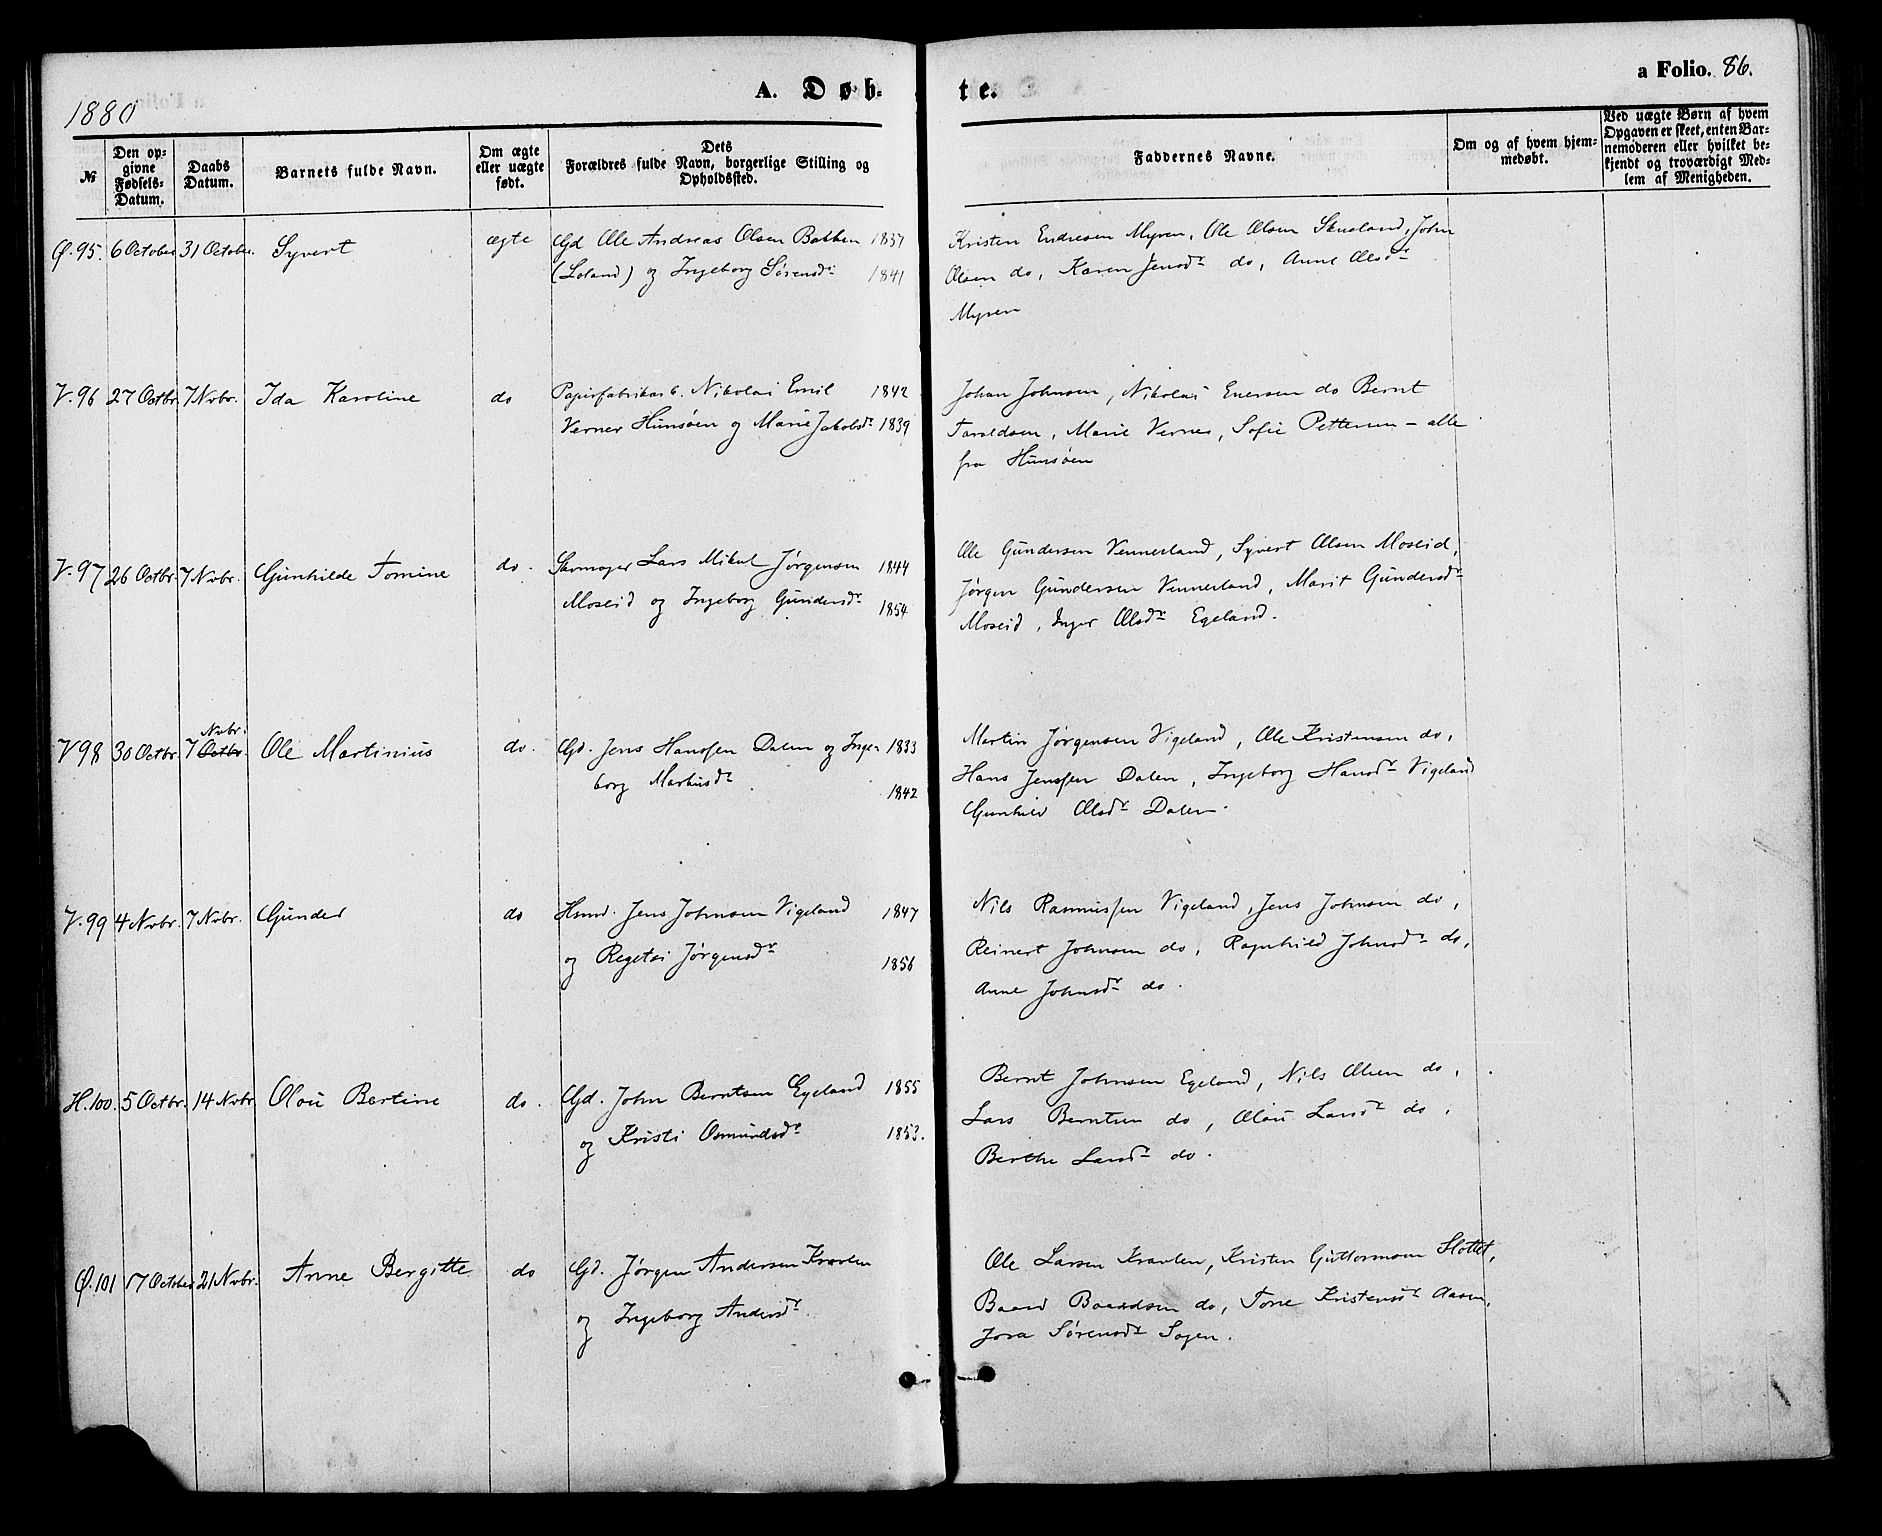 1880
A. Døb-
te.
a Folio. 86.
№
Den op-
givne
Fødsels-
Datum.
Daabs
Datum.
Barnets fulde Navn.
Om ægte
eller uægte
født.
Dets
Forældres fulde Navn, borgerlige Stilling og
Opholdssted.
Faddernes Navne.
Om og af hvem hjem-
medøbt.
Ved uægte Børn af hvem
Opgaven er skeet, enten Bar-
nemoderen eller hvilket be-
kjendt og troværdigt Med-
lem af Menigheden.
Ø. 95. 6 October 31 October. Syvert ægte Gd Ole Andreas Olsen Bakken 1837
(Loland) og Ingeborg Sørensdr 1841
Kristen Endresen Myren, Ole Olsen Skusland, John
Olsen do, Karen Jensdr do, Anne Olsdr
Myren
V. 96 27 Octbr. 7 Nvbr. Ida Karoline do Papirfabrikarb. Nikolai Emil 1842
Verner Hunsøen og Marie Jakobsdr 1839
Johan Johnsen, Nikolai Enersen do Bernt
Taraldsen, Marie Vernes, Sofie Pettersen - alle
fra Hunsøen
V. 97 26 Octbr. 7 Nvbr. Gunhilde Tomine do. Skomager Lars Mikal Jørgensen 1844
Moseid og Ingeborg Gundersdr 1854
Ole Gundersen Vennesland, Syvert Olsen Moseid,
Jørgen Gundersen Vennesland, Marit Gundersdr
Moseid, Inger Olsdr Egeland.
Nvbr.
V 98 30 Octbr. 7 Octbr. Ole Martinius do. Gd. Jens Hanssen Dalen og Inge- 1833
borg Markusdr 1842
Martin Jørgensen Vigeland, Ole Kristensen do,
Hans Jenssen Dalen, Ingeborg Hansdr Vigeland
Gunhild Olsdr Dalen.
V. 99 4 Nvbr. 7 Nvbr. Gunder do Hsmd. Jens Johnsen Vigeland 1847
og Regetai Jørgensdr 1856
Nils Rasmussen Vigeland, Jens Johnsen do,
Reinert Johnsen do, Ragnhild Johnsdr do,
Anne Johnsdr do.
H. 100. 5 Octbr. 14 Nvbr Olou Bertine do. Gd. John Berntsen Egeland 1855
og Kristi Osmundsdr 1853.
Bernt Johnsen Egeland, Nils Olsen do,
Lars Berntsen do, Olou Larsdr do,
Berthe Larsdr do.
Ø. 101 17 October 21 Nvbr. Anne Bergitte do Gd. Jørgen Andersen Kravlen
og Ingeborg Andersdr.
Ole Larsen Kravlen, Kristen Guttormsen Slottet,
Baard Baardsen do, Tone Kristensdr Aasen,
Jora Sørensdr Sagen.